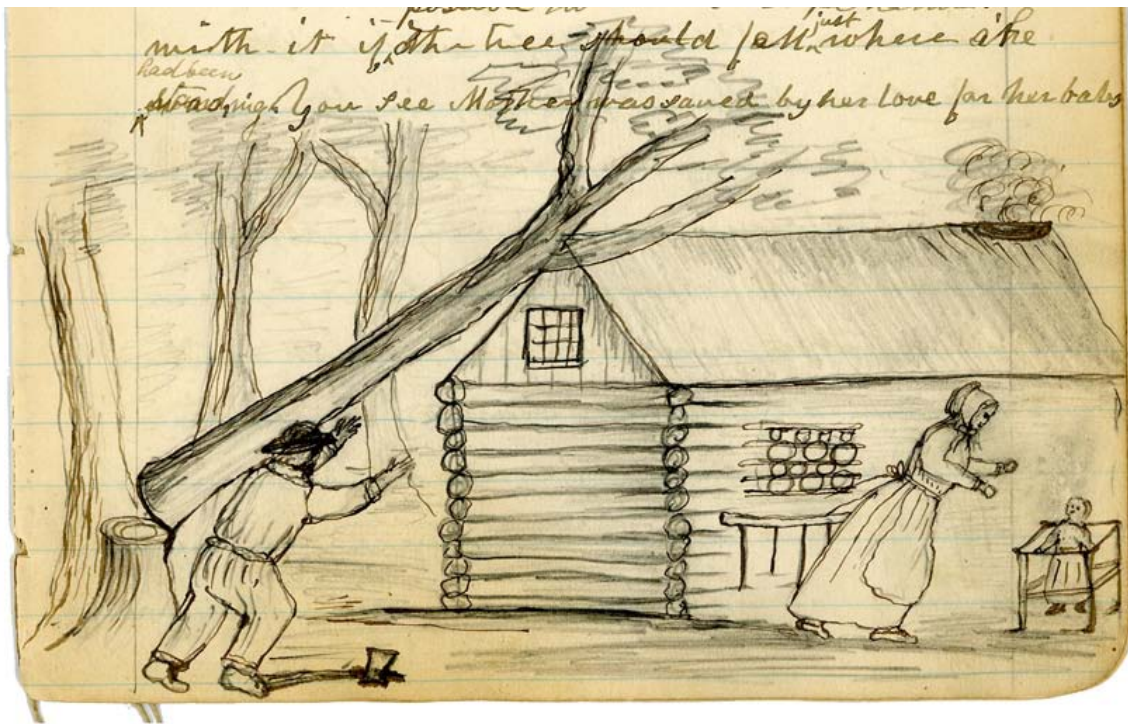 with it if the tree should fall just where she
had been
standing. You see Mother was saved by her love for her baby